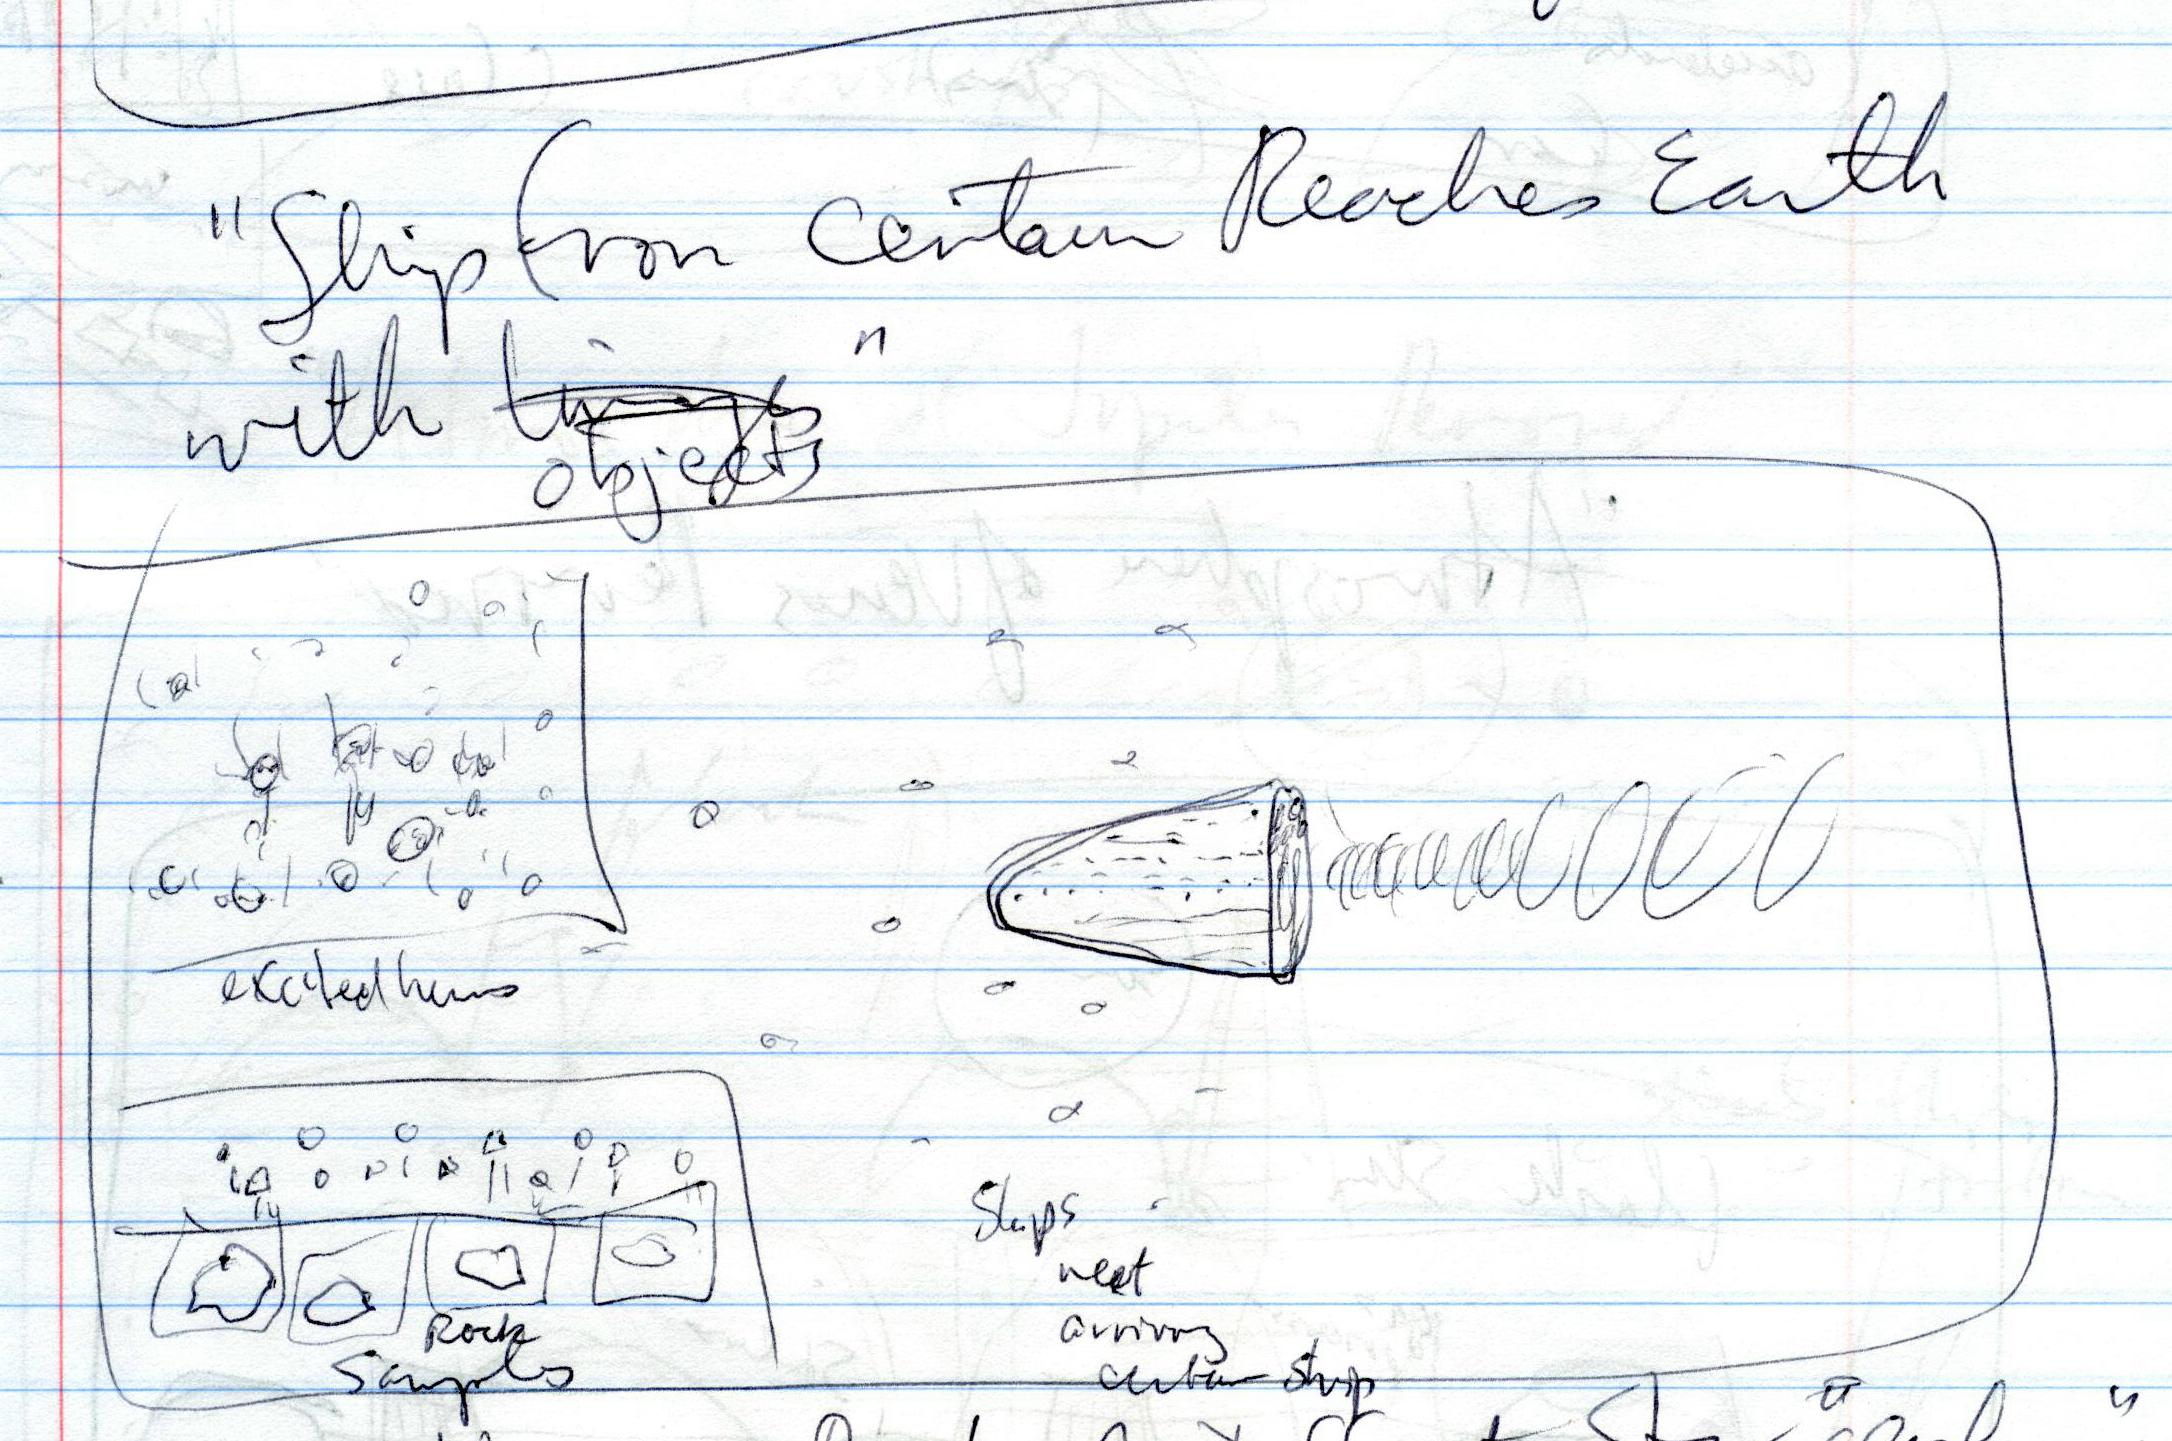 "Ship from Certain Reaches Earth
with things "
objects
excited hums
Rock
Samples
Ships
meet
arriving
certain ship